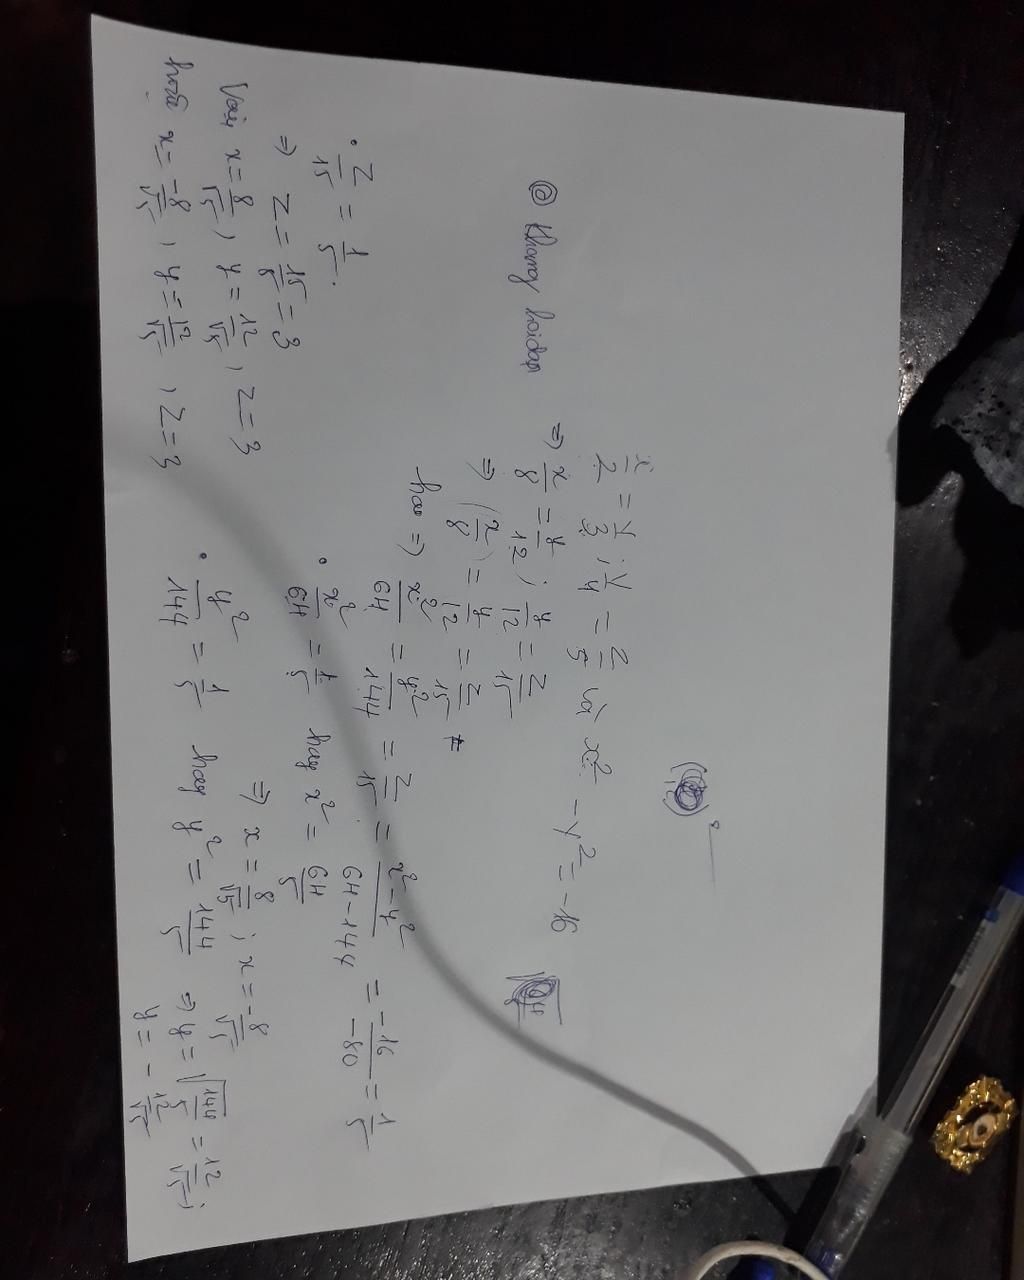 @ Khang hoidap
x/2 = y/3 ; y/4 = z/5 và x² - y² = -16
⇒ x/8 = y/12 ; y/12 = z/15
⇒ (x/8) = y/12 = z/15
hay ⇒ x²/64 = y²/144 = z/15 = x² - y²/64 - 144 = -16/-80 = 1/5
• x²/64 = 1/5 hay x² = 64/5
⇒ x = 8/√5 ; x = -8/√5
• y²/144 = 1/5 hay y² = 144/5 ⇒ y = √144/5 = 12/√5 ;
y = - 12/√5
• z/15 = 1/5
⇒ z = 15/5 = 3
Vậy x = 8/√5 , y = 12/√5 , z = 3
hoặc x = -8/√5 , y = 12/√5 , z = 3